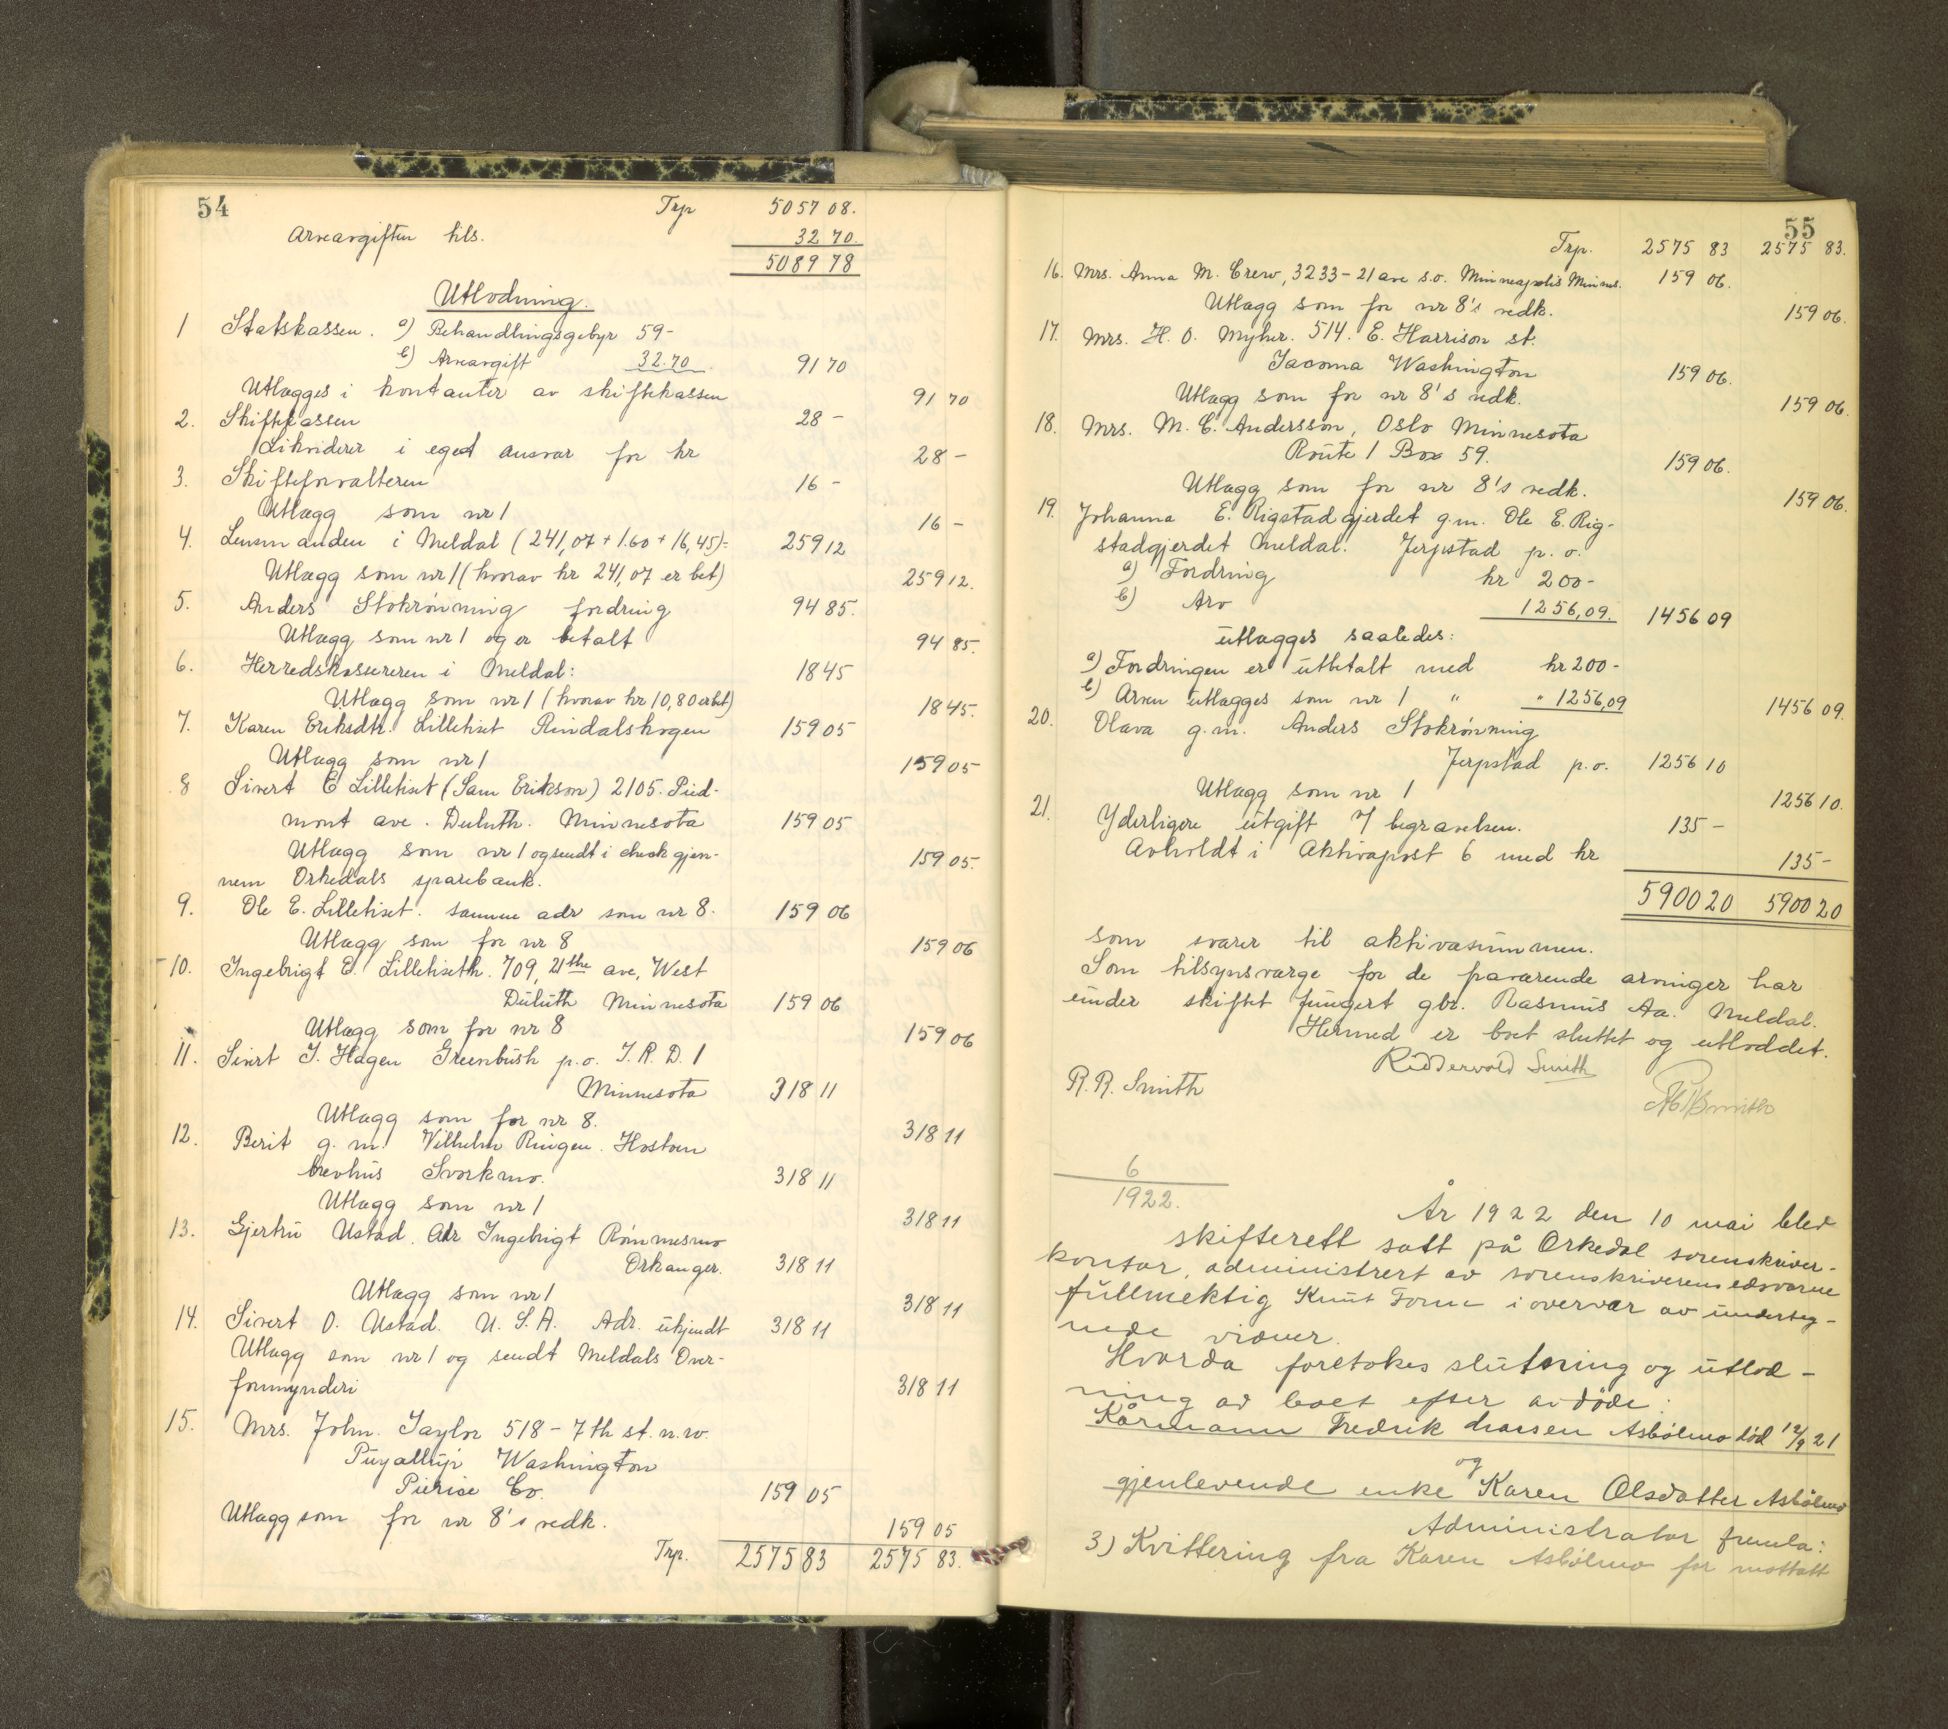 54
Trp 5057 08.
Arveavgiften tils. 32 70.
5089 78
Utlodning.
1 Statskassen. a) Behandlingsgebyr 59-
b) Arveavgift 32.70 91 70
Utlægges i kontanter av skiftekassen 91 70
2. Skiftekassen 28 -
Likviderer i eget ansvar for kr 28 -
3. Skifteforvalteren 16 -
Utlægg som nr 1 16 -
4. Lensmanden i Meldal (241,07 + 1.60 + 16,45)= 259 12
Utlægg som nr 1 (hvorav kr 241,07 er bet) 259 12.
5. Anders Stokrønning fordring 94 85.
Utlægg som nr 1 og er betalt 94 85.
6. Herredskassereren i Meldal: 18 45
Utlægg som nr 1 (hvorav kr 10,80 er bet) 18 45.
7. Karen Eriksdtr. Lilletiset Rindalskogen 159 05
Utlægg som nr 1 159 05
8 Sivert E Lilletiset (Sam Erikson) 2105. Pied-
mont ave. Duluth. Minnesota 159 05
Utlægg som nr 1 og sendt i check gjen- 159 05.
nem Orkedals sparebank.
9. Ole E. Lilletiset. samme adr som nr 8. 159 06
Utlægg som for nr 8 159 06
10. Ingebrigt E. Lilletiseth. 709, 21the ave, West
Duluth Minnesota 159 06
Utlægg som for nr 8 159 06
11. Sivert J. Hagen Greenbush p.o. T. R. D. 1
Minnesota 318 11
Utlægg som for nr 8. 318 11
12. Berit g. m. Vilhelm Ringen. Hostoen
brevhus Svorkmo. 318 11
Utlægg som nr 1 318 11
13. Gjertru Ustad. Adr Ingebrigt Rømmesmo
Orkanger. 318 11
Utlægg som nr 1 318 11
14. Sivert O. Ustad. U. S. A. Adr. ukjendt 318 11
Utlægg som nr 1 og sendt Meldals Over-
formynderi 318 11
15. Mrs. John. Taylor 518 - 7th st. n.w.
Puyallup Washington
Pierise Co. 159 05
Utlægg som for nr 8's vedk. 159 05
Trp. 2575 83 2575 83.
55
Trp. 2575 83 2575 83.
16. Mrs. Anna M. Crew, 3233 - 21 ave s.o. Minneapolis Minnes. 159 06.
Utlægg som for nr 8's vedk. 159 06.
17. Mrs. H. O. Myher. 514. E. Harrison st.
Tacoma Washington 159 06.
Utlægg som for nr 8's vedk. 159 06.
18. Mrs. M. C. Andersson, Oslo Minnesota
Route 1 Box 59. 159 06.
Utlægg som for nr 8's vedk. 159 06.
19. Johanna E. Rigstadgjerdet g.m. Ole E. Rig-
stadgjerdet Meldal. Jerpstad p. o.
a) Fordring kr 200-
b) Arv 1256,09. 1456 09
utlægges saaledes:
a) Fordringen er utbetalt med kr 200-
b) Arven utlægges som nr 1 " " 1256,09 1456 09.
20. Olava g.m. Anders Stokrønning
Jerpstad p.o. 1256 10
Utlægg som nr 1 1256 10.
21. Yderligere utgift v/ begravelsen. 135 -
Avholdt i Aktivapost 6 med kr 135 -
5900 20 5900 20
som svarer til aktivasummen.
Som tilsynsværge for de fraværende arvinger har
under skiftet fungert gbr. Rasmus Aa. Meldal.
Hermed er boet sluttet og utloddet.
Riddervold Smith
R. R. Smith
6
1922.
År 1922 den 10 mai blev
skifterett satt på Orkedal sorenskriver-
kontor, administrert av sorenskriverens edsvorne
fullmektig Knut Forne i overvær av underteg-
nede vidner.
Hvorda foretokes slutning og utlod-
ning av boet efter avdøde:
Kårmann Fredrik Larsen Asbølmo død 12/9 21
og
gjenlevende enke Karen Olsdatter Asbølmo
Administrator fremla:
3) Kvittering fra Karen Asbølmo for mottatt